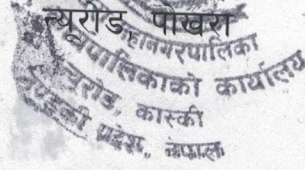 न्यूरोड, पोखरा
महानगरपालिका
नगरपालिकाको कार्यालय
न्यूरोड, कास्की
गण्डकी प्रदेश, नेपाल